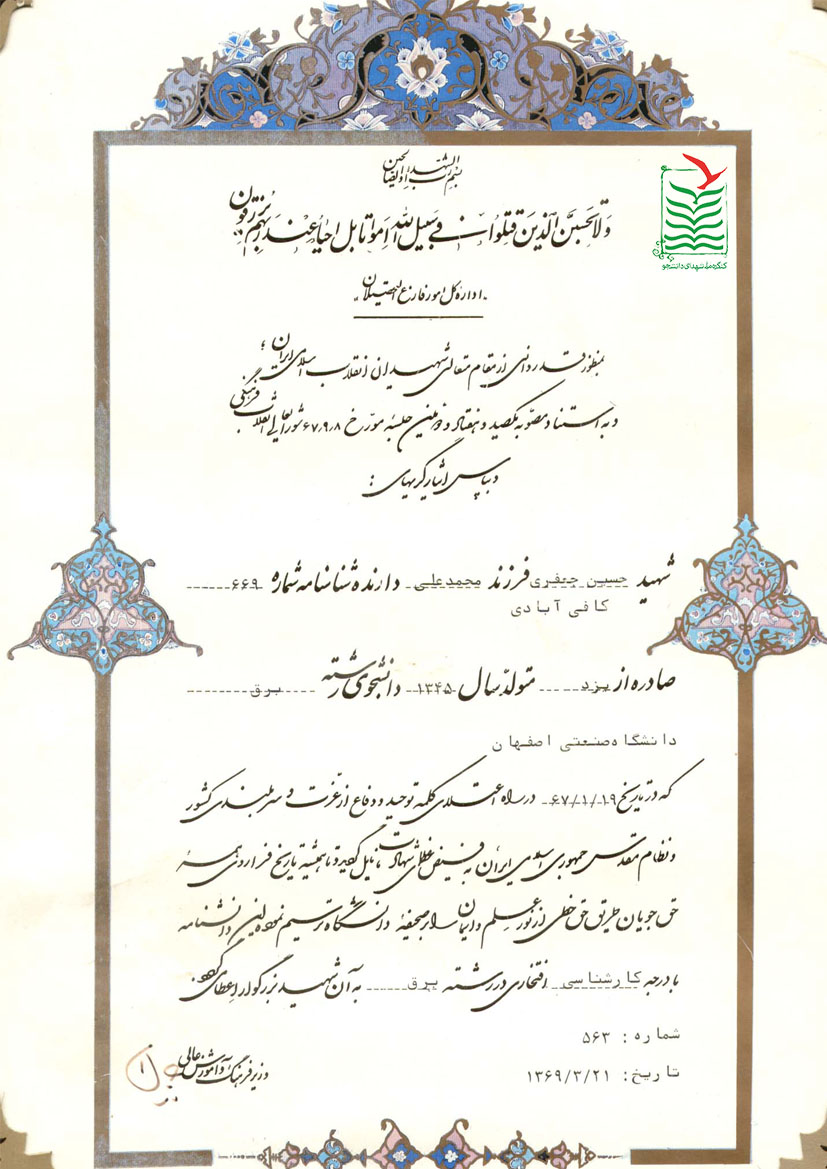 بسم رب الشهداء و الصدیقین
ولا تحسبن الذین قتلوا فی سبیل الله امواتا بل احیاء عند ربهم یرزقون
کنگره ملی شهدای دانشجو
اداره کل امور فارغ التحصیلان
بمنظور قدردانی از مقام متعالی شهیدان انقلاب اسلامی ایران؛
و به استناد مصوبه یکصد و هفتاد و دومین جلسه مورخ ۶۷٫۹٫۸ شورایعالی انقلاب فرهنگی
و بپاس ایثارگریهای:
شهید حسین جعفری فرزند محمدعلی دارنده شناسنامه شماره ۶۶۹
کافی آبادی
صادره از یزد متولد سال ۱۳۴۵ دانشجوی رشته برق
دانشگاه صنعتی اصفهان
که در تاریخ ۶۷/۱/۱۹ در راه اعتلای کلمه توحید و دفاع از عزت و سربلندی کشور
و نظام مقدس جمهوری اسلامی ایران به فیض عظمای شهادت نایل گردید و تا همیشه تاریخ فراروی همه
حق جویان طریق حق خطی از نور علم و ایمان را بر صحیفه دانشگاه ترسیم نموده این دانشنامه
با درجه کارشناسی افتخاری در رشته برق به آن شهید بزرگوار اعطا می گردد
شماره: ۵۶۳
تاریخ: ۱۳۶۹/۳/۲۱
وزیر فرهنگ و آموزش عالی